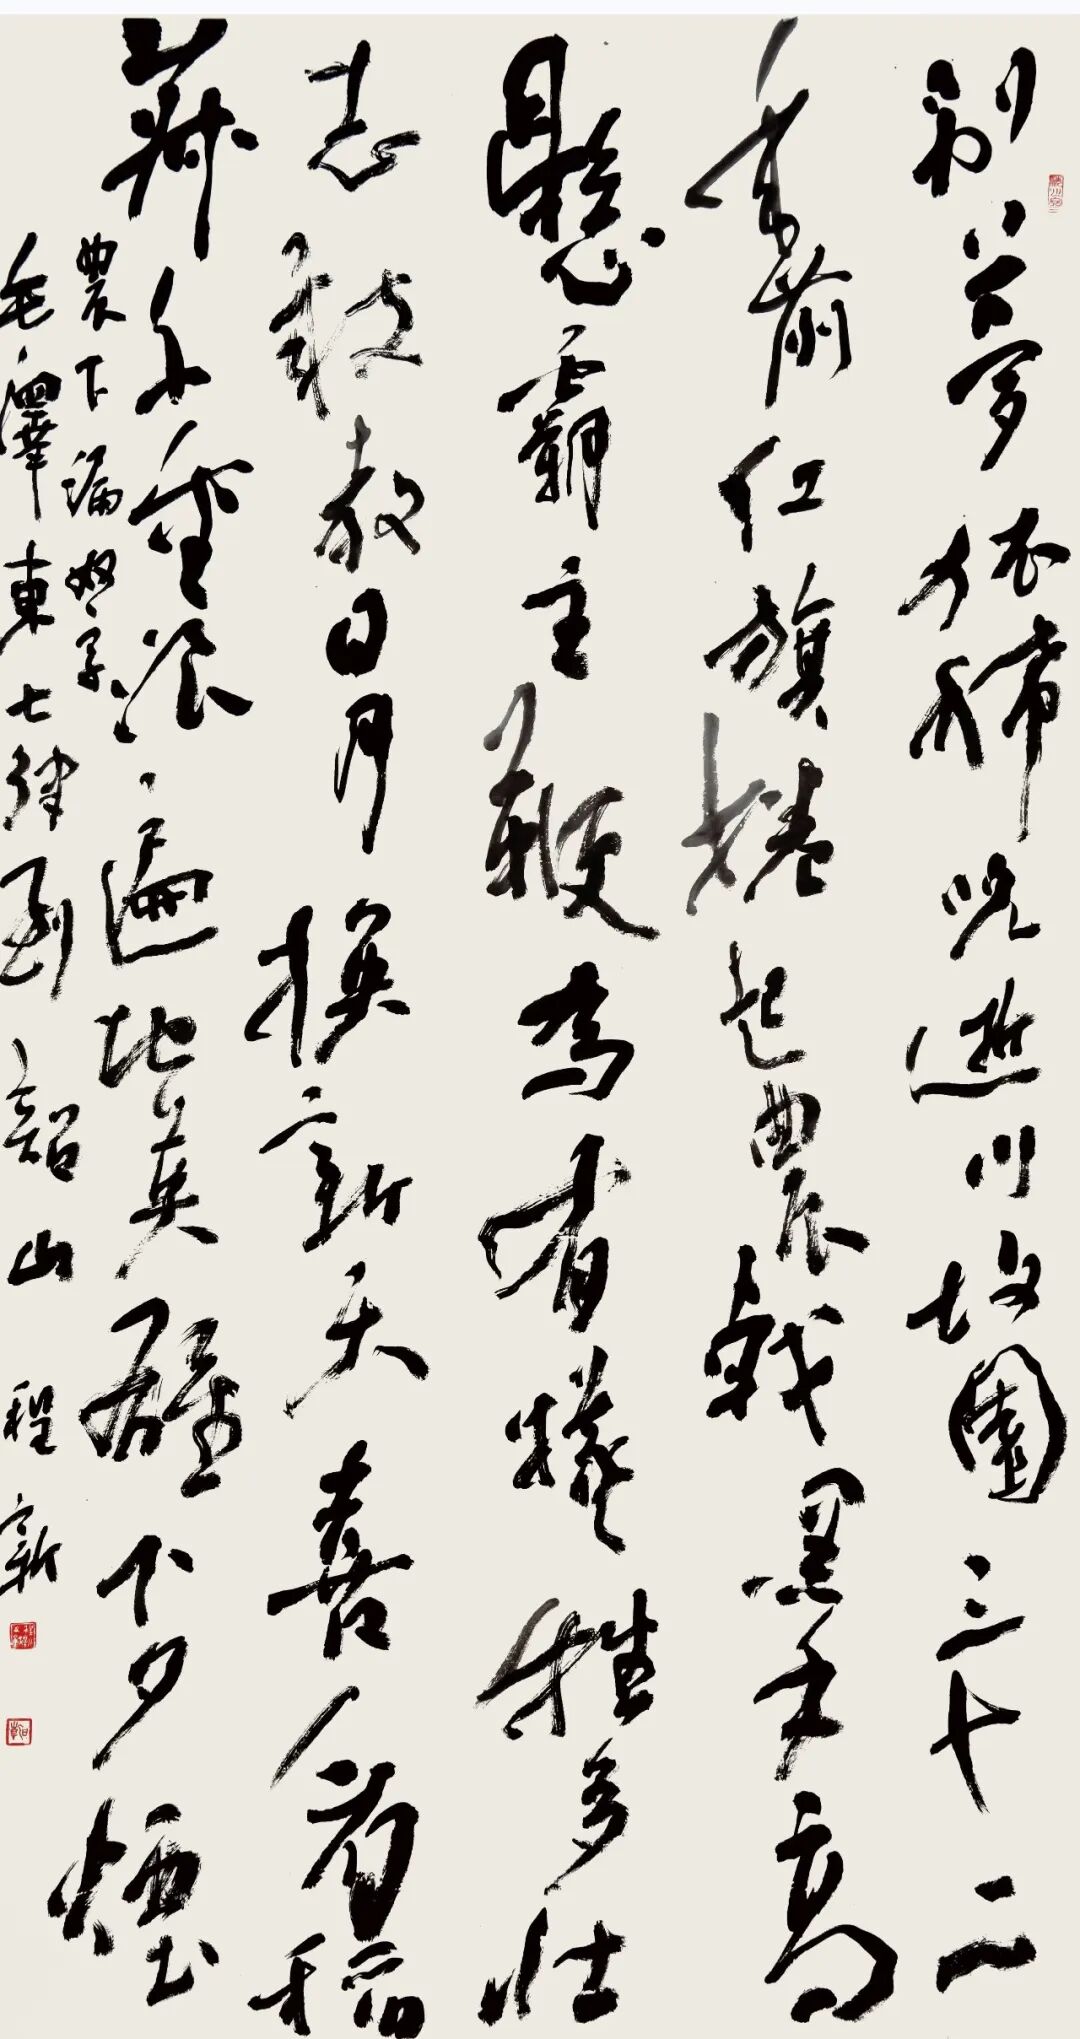 别夢依稀咒逝川故園三十二
年前红旗捲起農戟黑手高
懸霸主鞭為有犧牲多壮
志敢教日月换新天喜看稻
菽千重浪遍地英雄下夕煙
農下漏奴字
毛澤東七律到韶山 程新